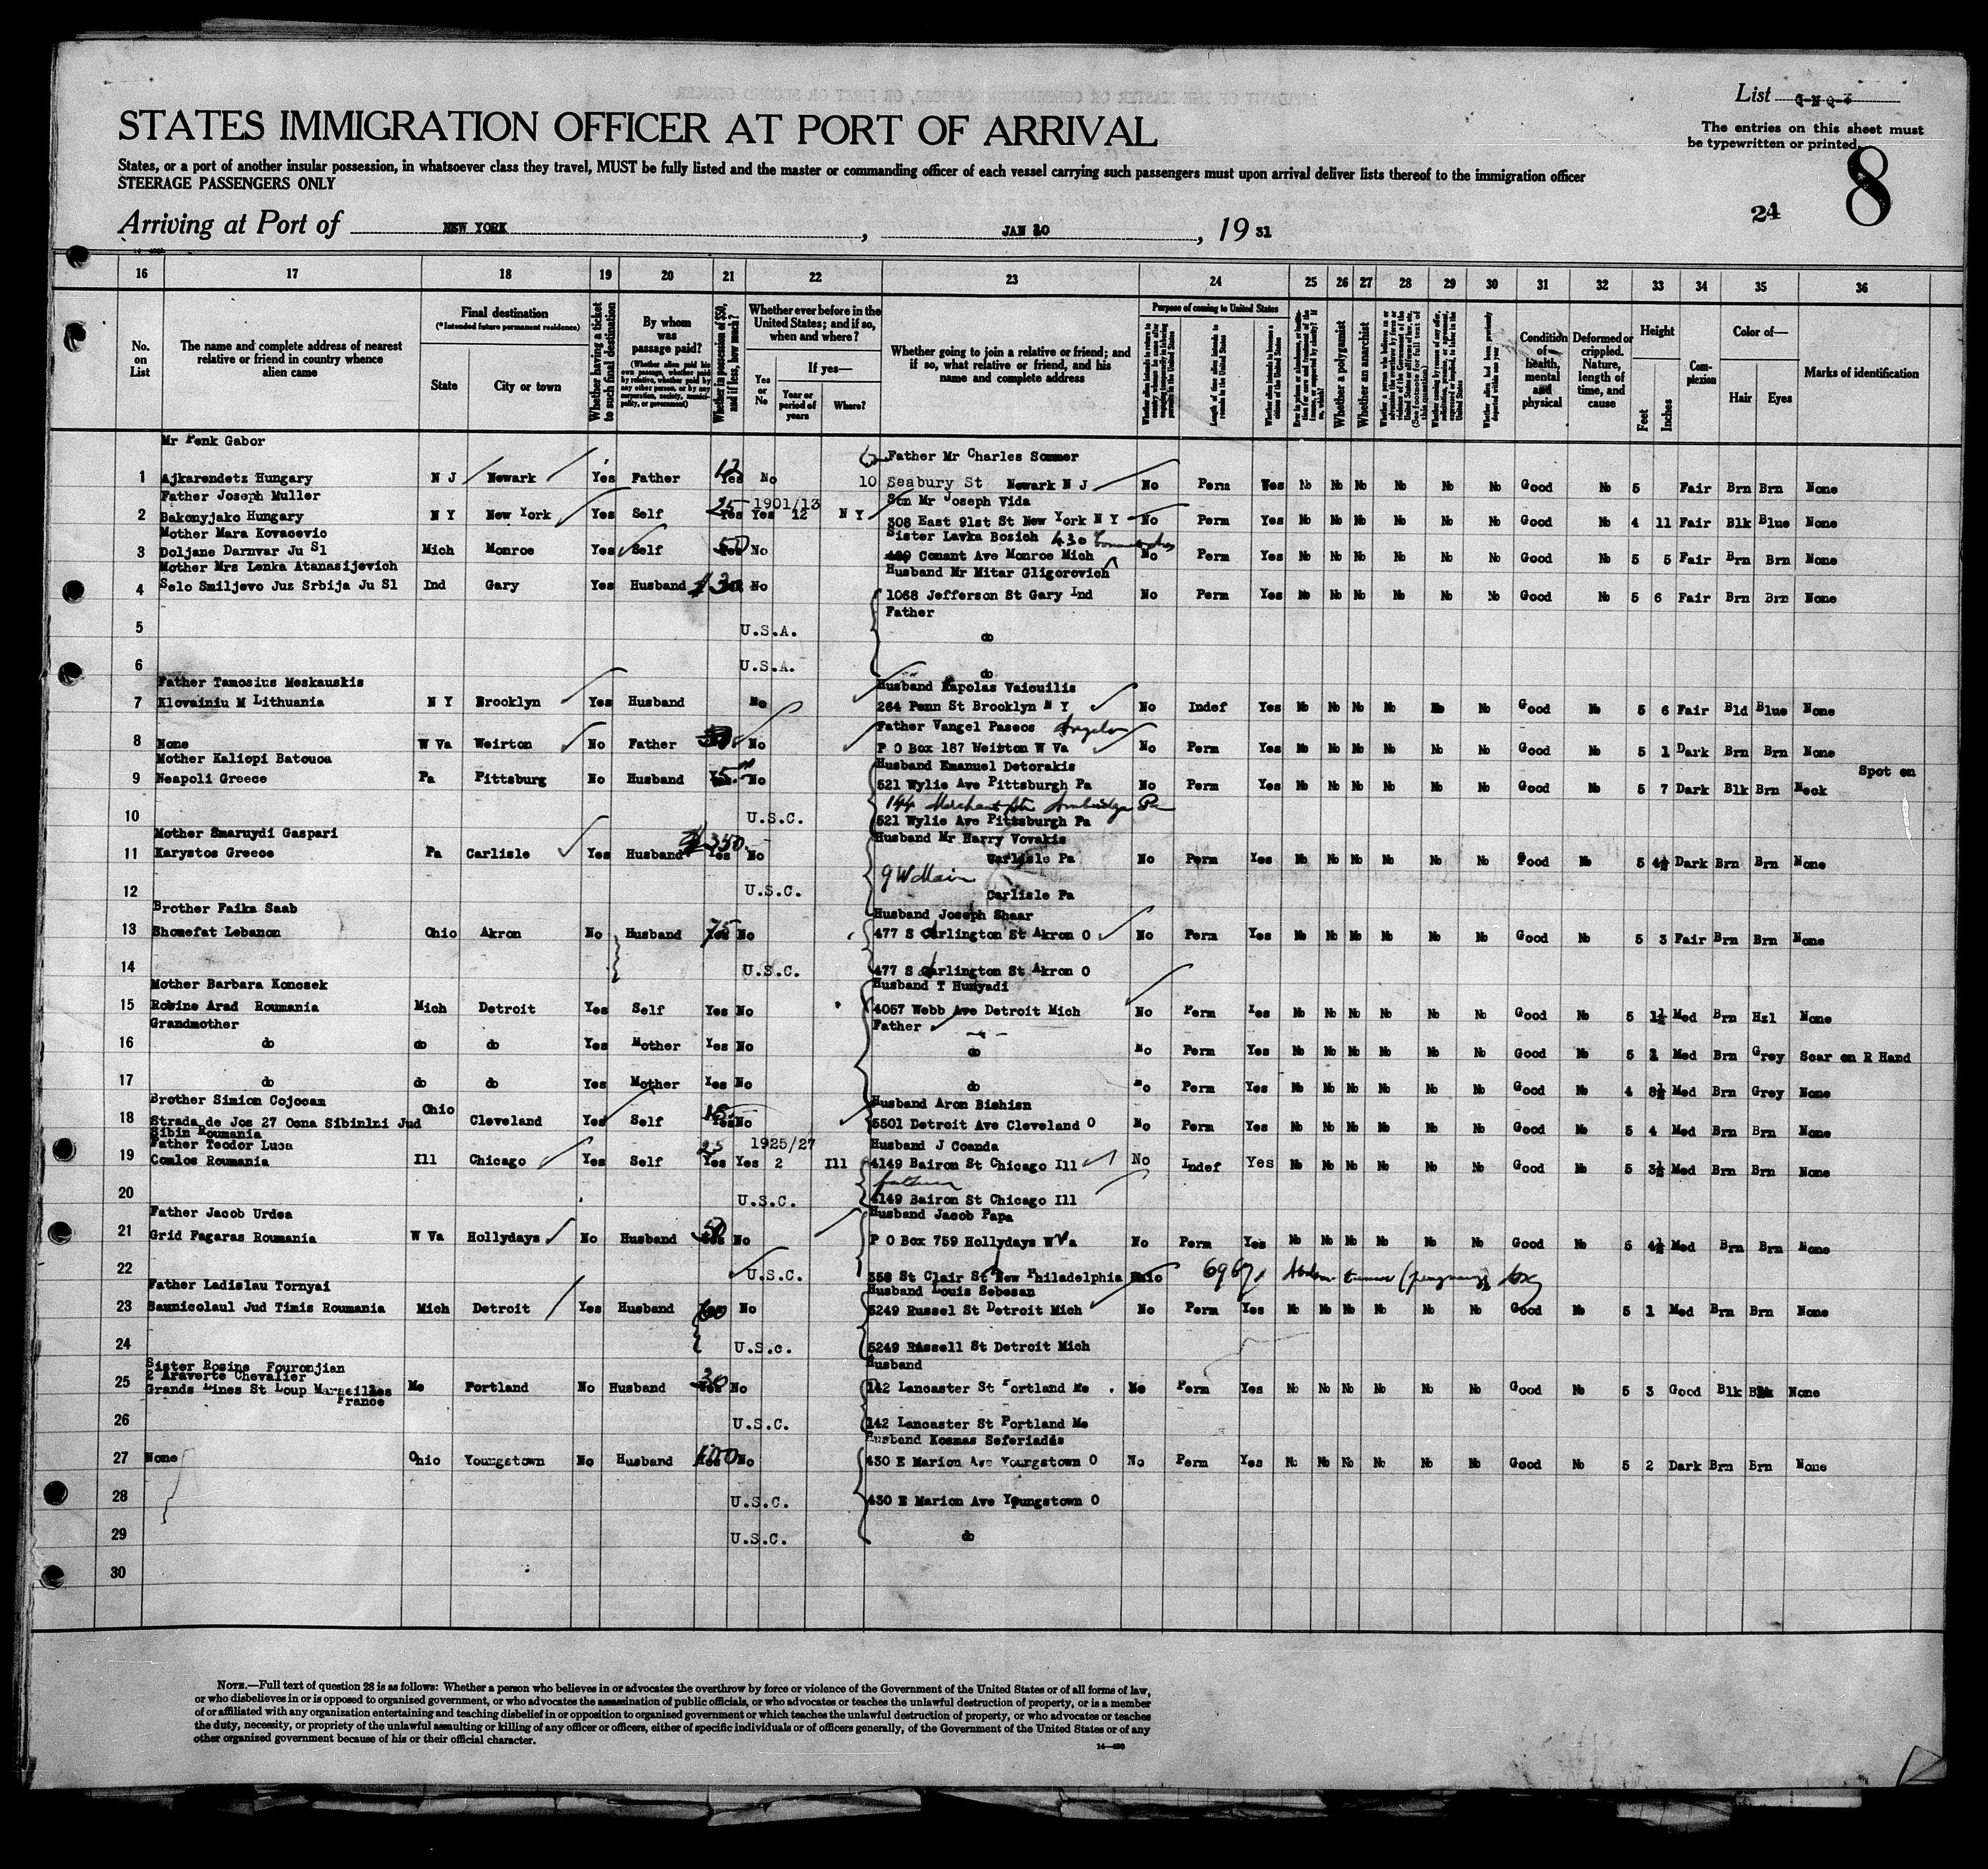 List G-N Q-
The entries on this sheet must
be typewritten or printed.
8
24
STATES IMMIGRATION OFFICER AT PORT OF ARRIVAL
States, or a port of another insular possession, in whatsoever class they travel, MUST be fully listed and the master or commanding officer of each vessel carrying such passengers must upon arrival deliver lists thereof to the immigration officer
STEERAGE PASSENGERS ONLY
Arriving at Port of NEW YORK, JAN 20, 1931
16 17 18 19 20 21 22 23 24 25 26 27 28 29 30 31 32 33 34 35 36
No. on List
The name and complete address of nearest relative or friend in country whence alien came
Final destination
(*Intended future permanent residence)
State
City or town
Whether having a ticket to such final destination
By whom was passage paid?
Whether in possession of $50, and if less, how much?
Whether ever before in the United States; and if so, when and where?
Yes or No
If yes—
Year or period of years
Where?
Whether going to join a relative or friend; and if so, what relative or friend, and his name and complete address
Purpose of coming to United States
Length of time alien intends to remain in the United States
Whether alien intends to become a citizen of the United States
Whether a polygamist
Whether an anarchist
Condition of health, mental and physical
Deformed or crippled. Nature, length of time, and cause
Height
Feet
Inches
Complexion
Color of—
Hair
Eyes
Marks of identification
Mr Penk Gabor Father Mr Charles Sommer
1 Ajkarendetz Hungary N J Newark Yes Father 12 Yes No 10 Seabury St Newark N J No Perm Yes No No No No No No Good No 5 Fair Brn Brn None
Father Joseph Muller 1901/13 Son Mr Joseph Vida
2 Bakonyjako Hungary N Y New York Yes Self 25 Yes Yes 12 N Y 308 East 91st St New York N Y No Perm Yes No No No No No No Good No 4 11 Fair Blk Blue None
Mother Mara Kovacevic Sister Lavka Bozich 430
3 Doljane Darnvar Ju Sl Mich Monroe Yes Self 50 No Conant Ave Monroe Mich No Perm Yes No No No No No No Good No 5 5 Fair Brn Brn None
Mother Mrs Lenka Atanasijevich Husband Mr Mitar Gligorovich
4 Selo Smiljevo Juz Srbija Ju Sl Ind Gary Yes Husband $30 No 1068 Jefferson St Gary Ind No Perm Yes No No No No No No Good No 5 6 Fair Brn Brn None
Father
5 U.S.A. do
6 U.S.A. do
Father Tamosius Meskauskis Husband Kapolas Vaicuilis
7 Klovainiu M Lithuania N Y Brooklyn Yes Husband No 264 Penn St Brooklyn N Y No Indef Yes No No No No No No Good No 5 6 Fair Bld Blue None
Father Vangel Paseos
8 None W Va Weirton No Father No P O Box 187 Weirton W Va No Perm Yes No No No No No No Good No 5 1 Dark Brn Brn None
Mother Kaliopi Batouca Husband Emanuel Detorakis Spot on
9 Neapoli Greece Pa Pittsburg No Husband No 521 Wylie Ave Pittsburgh Pa No Perm Yes No No No No No No Good No 5 7 Dark Blk Brn Neck
144 Merchant St Ambridge Pa
10 U.S.C. 521 Wylie Ave Pittsburgh Pa
Mother Smaruydi Gaspari Husband Mr Harry Vovakis
11 Karystos Greece Pa Carlisle Yes Husband $350 Yes No Carlisle Pa No Perm Yes No No No No No No Good No 5 4½ Dark Brn Brn None
9 W Main
12 U.S.C. Carlisle Pa
Brother Faika Saab Husband Joseph Shaar
13 Shouefat Lebanon Ohio Akron No Husband 75 Yes No 477 S Arlington St Akron O No Perm Yes No No No No No No Good No 5 3 Fair Brn Brn None
14 U.S.C. 477 S Arlington St Akron O
Mother Barbara Koncsek Husband T Hunyadi
15 Rosine Arad Roumania Mich Detroit Yes Self Yes No 4057 Webb Ave Detroit Mich No Perm Yes No No No No No No Good No 5 1½ Med Brn Hzl None
Grandmother Father
16 do do do Yes Mother Yes No do No Perm Yes No No No No No No Good No 5 Med Brn Grey Scar on R Hand
17 do do do Yes Mother Yes No do No Perm Yes No No No No No No Good No 4 8½ Med Brn Grey None
Brother Simion Cojocan Husband Aron Bishisn
18 Strada de Jos 27 Ocna Sibinlni Jud Ohio Cleveland Yes Self 15 Yes No 5501 Detroit Ave Cleveland O No Perm Yes No No No No No No Good No 5 4 Med Brn Brn None
Sibin Roumania
Father Teodor Luca 1925/27 Husband J Coanda
19 Comlos Roumania Ill Chicago Yes Self 25 Yes Yes 2 Ill 4149 Bairon St Chicago Ill No Indef Yes No No No No No No Good No 5 3½ Med Brn Brn None
father
20 U.S.C. 4149 Bairon St Chicago Ill
Father Jacob Urdea Husband Jacob Papa
21 Grid Fagaras Roumania W Va Hollydays No Husband 50 Yes No P O Box 759 Hollydays W Va No Perm Yes No No No No No No Good No 5 4½ Med Brn Brn None
22 U.S.C. 358 St Clair St New Philadelphia Ohio tumor (pregnancy)
Father Ladislau Tornyai Husband Louis Sebesan
23 Saunicolaul Jud Timis Roumania Mich Detroit Yes Husband No 5249 Russel St Detroit Mich No Perm Yes No No No No No No Good No 5 1 Med Brn Brn None
24 U.S.C. 5249 Russell St Detroit Mich
Sister Rosine Fouronjian Husband
2 Araverte Chevalier
25 Grands Lines St Loup Marseilles Me Portland No Husband 30 Yes No 142 Lancaster St Portland Me No Perm Yes No No No No No No Good No 5 3 Good Blk Blk None
France
26 U.S.C. 142 Lancaster St Portland Me
Husband Kosmas Seferiadis
27 None Ohio Youngstown No Husband 100 No 430 E Marion Ave Youngstown O No Perm Yes No No No No No No Good No 5 2 Dark Brn Brn None
28 U.S.C. 430 E Marion Ave Youngstown O
29 U.S.C. do
30
NOTE.—Full text of question 28 is as follows: Whether a person who believes in or advocates the overthrow by force or violence of the Government of the United States or of all forms of law,
or who disbelieves in or is opposed to organized government, or who advocates the assassination of public officials, or who advocates or teaches the unlawful destruction of property, or is a member
of or affiliated with any organization entertaining and teaching disbelief in or opposition to organized government or which teaches the unlawful destruction of property, or who advocates or teaches
the duty, necessity, or propriety of the unlawful assaulting or killing of any officer or officers, either of specific individuals or of officers generally, of the Government of the United States or of any
other organized government because of his or their official character.
14—420